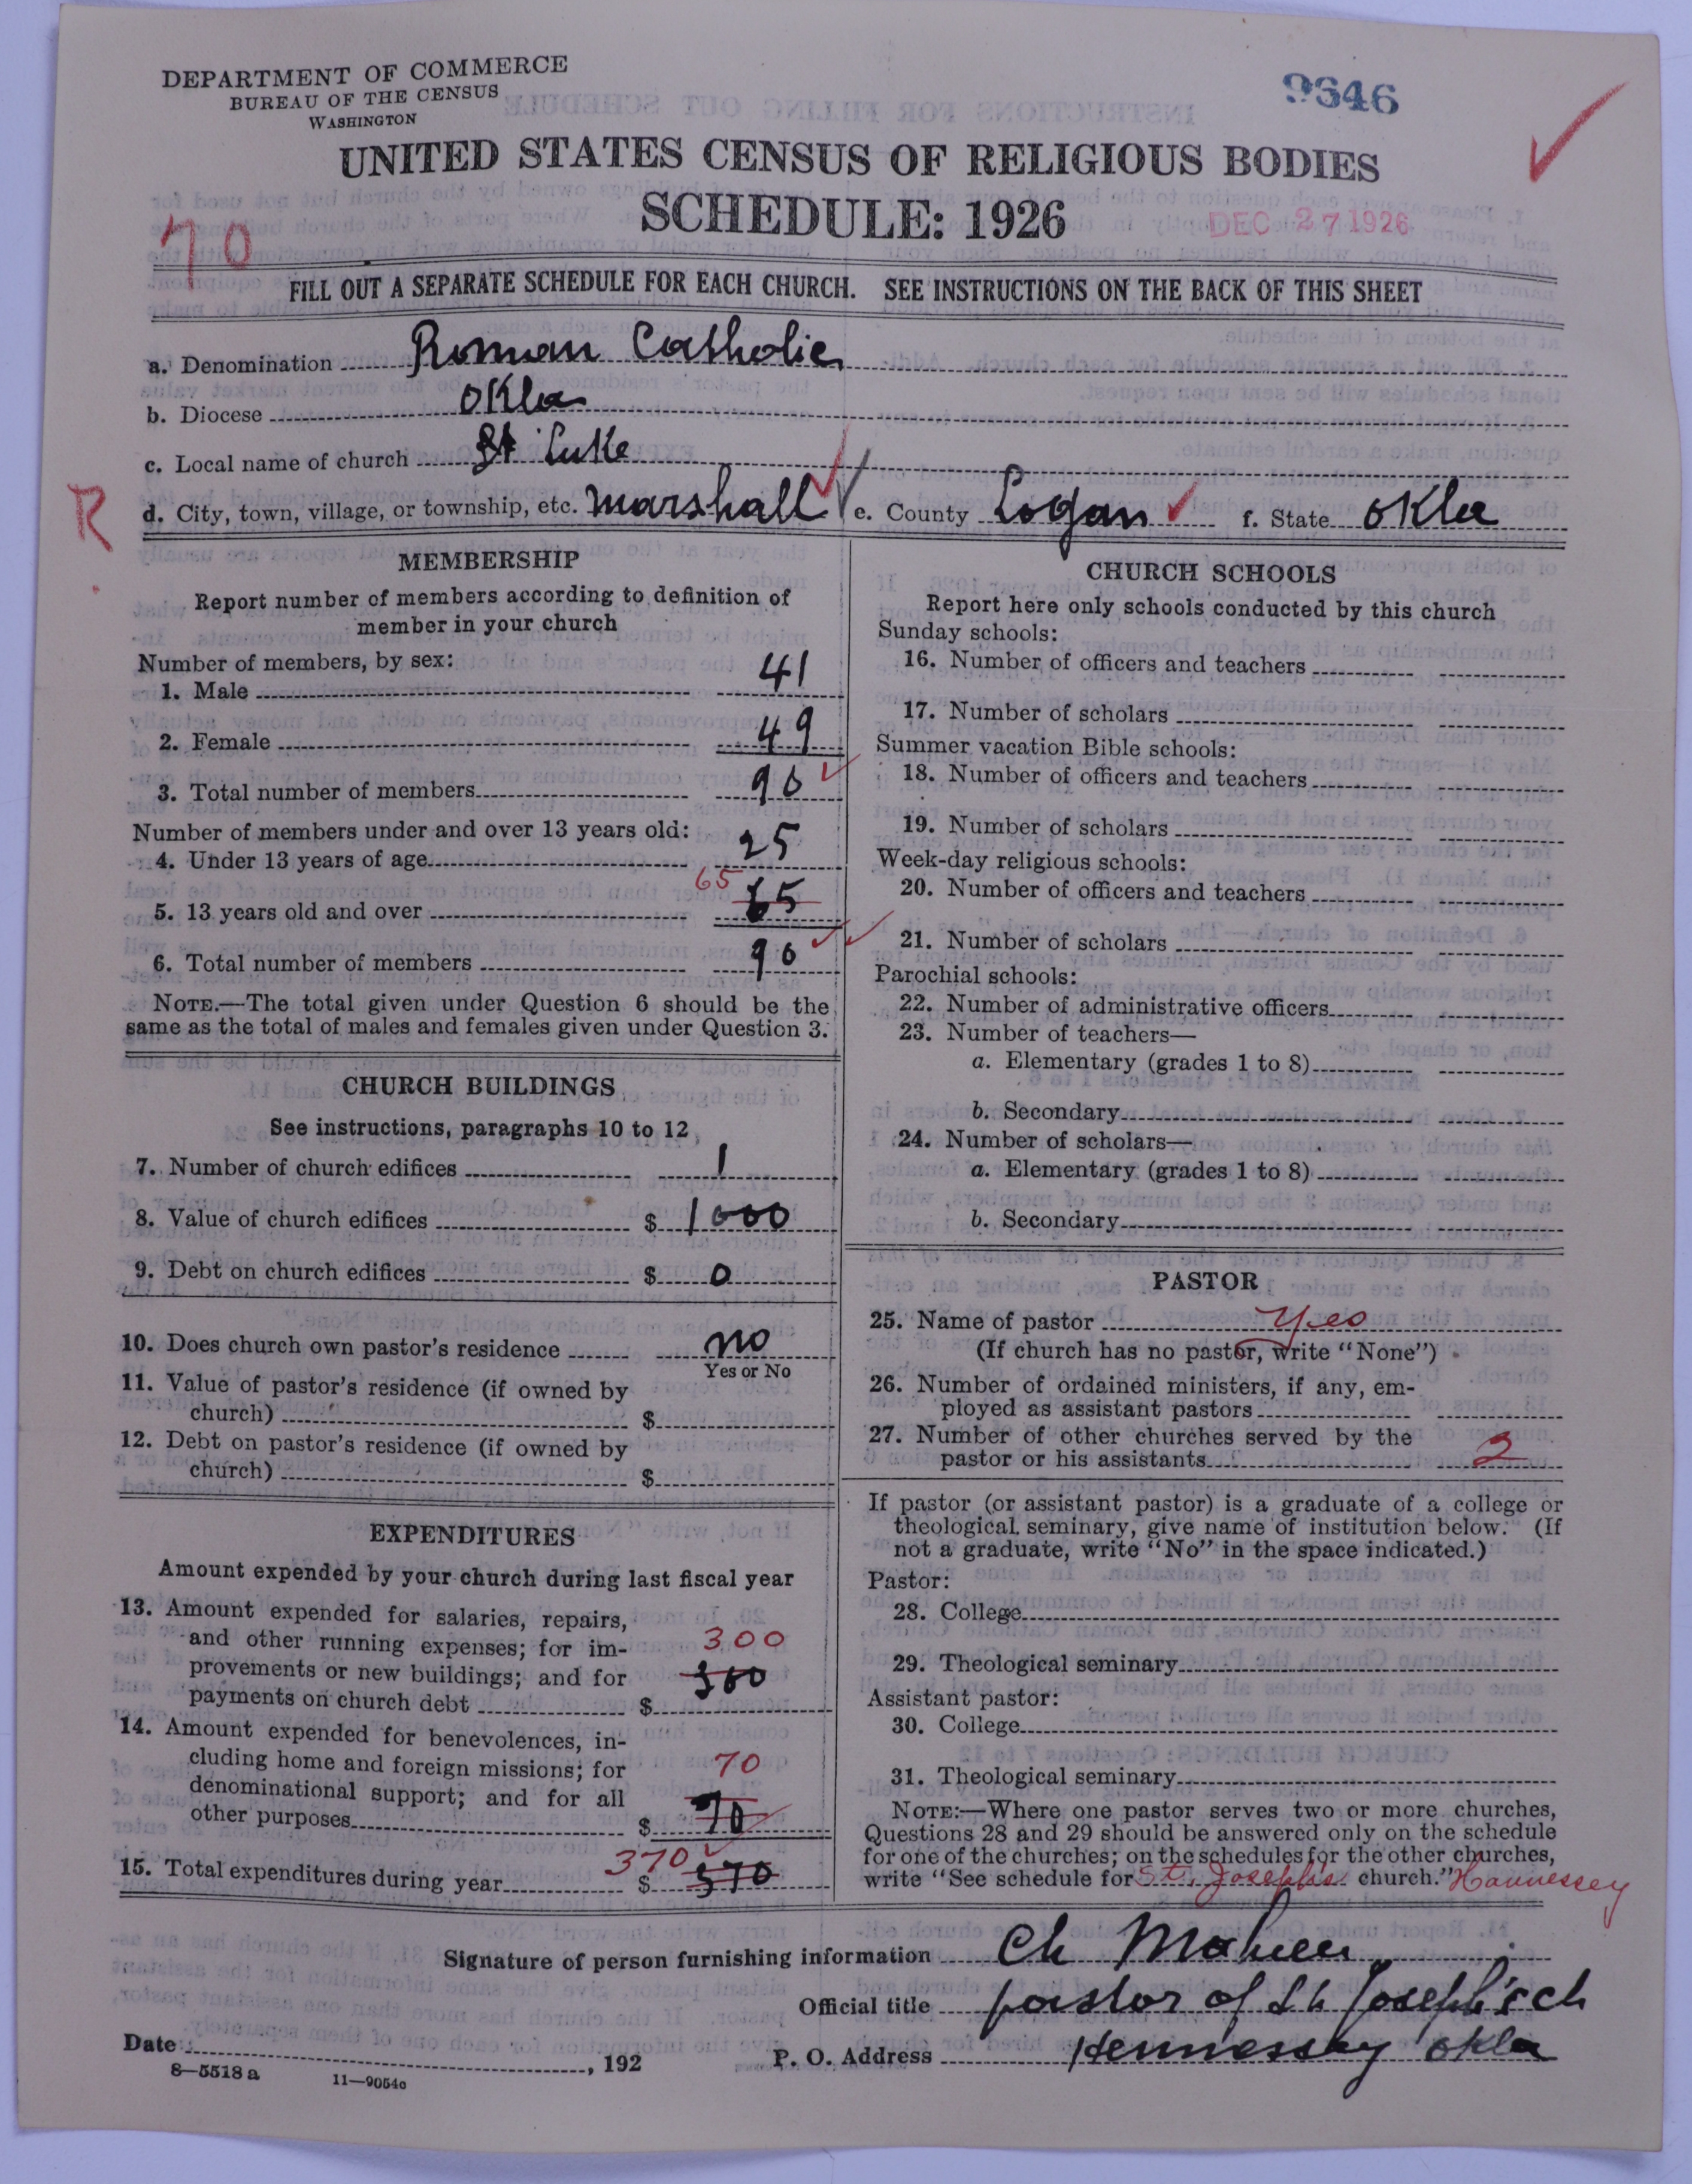 DEPARTMENT OF COMMERCE
BUREAU OF THE CENSUS
WASHINGTON
9646
UNITED STATES CENSUS OF RELIGIOUS BODIES
SCHEDULE: 1926
DEC 27 1926
70
FILL OUT A SEPARATE SCHEDULE FOR EACH CHURCH. SEE INSTRUCTIONS ON THE BACK OF THIS SHEET
a. Denomination Roman Catholic
b. Diocese Okla
c. Local name of church St Luke
R
d. City, town, village, or township, etc. Marshall e. County Logan f. State Okla
MEMBERSHIP
Report number of members according to definition of
member in your church
Number of members, by sex:
1. Male 41
2. Female 49
3. Total number of members 90
Number of members under and over 13 years old:
4. Under 13 years of age 25
65
5. 13 years old and over 65
6. Total number of members 90
NOTE.—The total given under Question 6 should be the
same as the total of males and females given under Question 3.
CHURCH BUILDINGS
See instructions, paragraphs 10 to 12
7. Number of church edifices 1
8. Value of church edifices $ 1000
9. Debt on church edifices $ 0
10. Does church own pastor's residence no
Yes or No
11. Value of pastor's residence (if owned by
church) $
12. Debt on pastor's residence (if owned by
church) $
EXPENDITURES
Amount expended by your church during last fiscal year
13. Amount expended for salaries, repairs,
and other running expenses; for im- 300
provements or new buildings; and for 300
payments on church debt $
14. Amount expended for benevolences, in-
cluding home and foreign missions; for 70
denominational support; and for all
other purposes $ 70
370
15. Total expenditures during year $ 370
CHURCH SCHOOLS
Report here only schools conducted by this church
Sunday schools:
16. Number of officers and teachers
17. Number of scholars
Summer vacation Bible schools:
18. Number of officers and teachers
19. Number of scholars
Week-day religious schools:
20. Number of officers and teachers
21. Number of scholars
Parochial schools:
22. Number of administrative officers
23. Number of teachers—
a. Elementary (grades 1 to 8)
b. Secondary
24. Number of scholars—
a. Elementary (grades 1 to 8)
b. Secondary
PASTOR
25. Name of pastor Yes
(If church has no pastor, write "None")
26. Number of ordained ministers, if any, em-
ployed as assistant pastors
27. Number of other churches served by the
pastor or his assistants 2
If pastor (or assistant pastor) is a graduate of a college or
theological seminary, give name of institution below. (If
not a graduate, write "No" in the space indicated.)
Pastor:
28. College
29. Theological seminary
Assistant pastor:
30. College
31. Theological seminary
NOTE:—Where one pastor serves two or more churches,
Questions 28 and 29 should be answered only on the schedule
for one of the churches; on the schedules for the other churches,
write "See schedule for St. Joseph's church." Hennessey
Signature of person furnishing information Ch
Official title pastor of St Joseph's ch
Date , 192
P. O. Address Hennessey Okla
8—5518 a 11—9054c